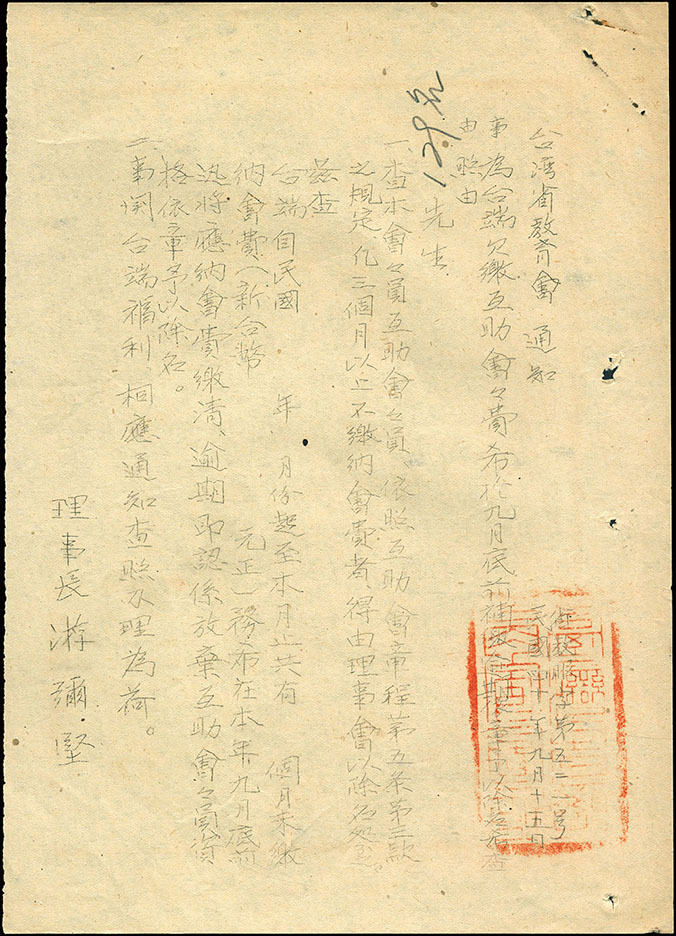 台湾省教育會 通知
衛教服字第五二一号
民國四十年九月十五日
事 為台端欠繳互助會々費希於九月底前補繳逾期依章予以除名希查
由 照由
129元
先生
一、查本會々員互助會々員、依照互助會章程第五条第三款
之規定凡三個月以上不繳納會費者得由理事會以除名処分。
茲查
台端自民國 年 月份起至本月止共有 個月未繳
納會費(新台幣 元正)務希在本年九月底前
迅將應納會費繳清、逾期即認係放棄互助會々員資
格依章予以除名。
二、事関台端福利、相應通知查照办理為荷。
理事長 游彌堅